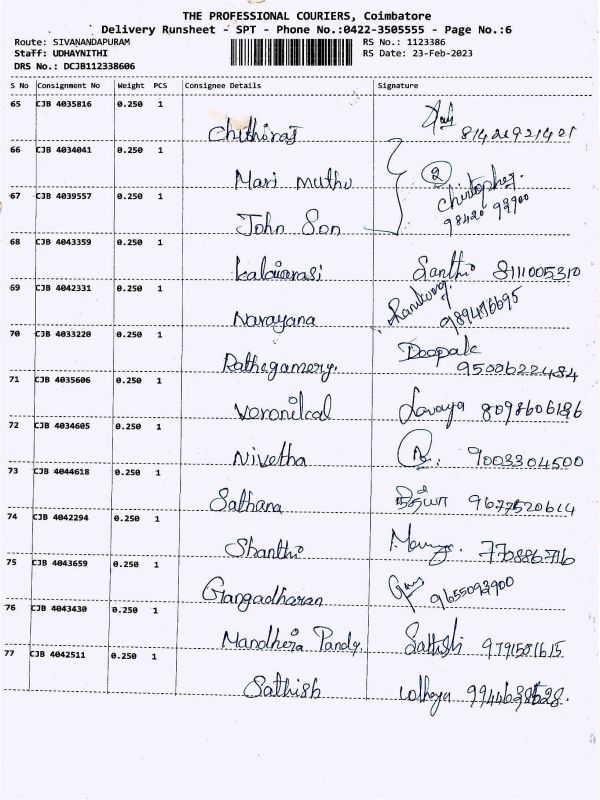 THE PROFESSIONAL COURIERS, Coimbatore
Delivery Runsheet - SPT - Phone No.:0422-3505555 - Page No.:6
Route: SIVANANDAPURAM RS No.: 1123386
Staff: UDHAYNITHI RS Date: 23-Feb-2023
DRS No.: DCJB112338606
S No Consignment No Weight PCS Consignee Details Signature
65 CJB 4035816 0.250 1
Chithiraj
66 CJB 4034041 0.250 1
Mari muthu 2
67 CJB 4039557 0.250 1
John Son 98420 92900
68 CJB 4043359 0.250 1
Kalaiarasi Santhi 8111005310
69 CJB 4042331 0.250 1
Narayana
70 CJB 4033220 0.250 1
Rathegamery. 9500622484
71 CJB 4035606 0.250 1
8098606186
72 CJB 4034605 0.250 1
Nivetha 9003304500
73 CJB 4044618 0.250 1
Sathana 9677520614
74 CJB 4042294 0.250 1
Shanthi
75 CJB 4043659 0.250 1
Gangadharan 9655092900
76 CJB 4043430 0.250 1
Pandy. Sathish 9791581615
77 CJB 4042511 0.250 1
Sathish